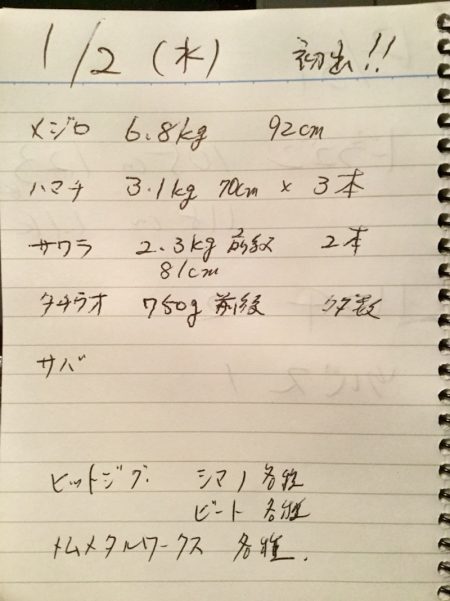 1/2 (水) 初出!!
メジロ 6.8kg 92cm
ハマチ 3.1kg 70cm × 3本
サワラ 2.3kg 前後 2本
81cm
タチウオ 750g 前後 多数
サバ
ヒットジグ シマノ各種
ビート 各種
メタルワークス 各種.